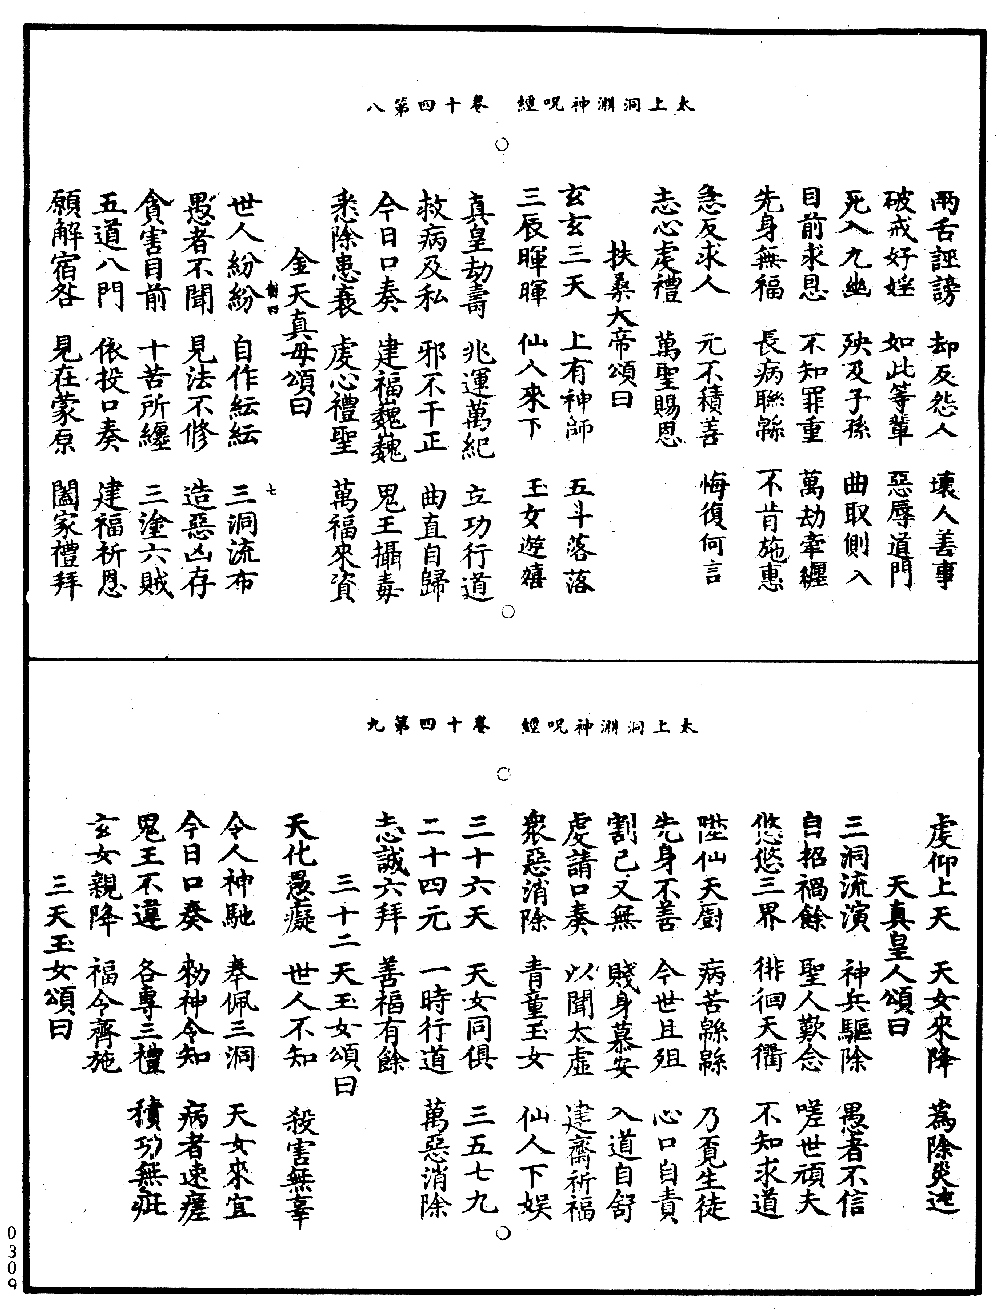 太上洞淵神呪經　卷十四第八
兩舌誣謗　却反怨人　壞人善事
破戒好婬　如此等輩　惡辱道門
死入九幽　殃及子孫　曲取側入
目前求恩　不知罪重　萬劫牽纏
先身無福　長病聯緜　不肯施惠
急反求人　元不積善　悔復何言
志心虔禮　萬聖賜恩
扶桑大帝頌曰
玄玄三天　上有神師　五斗落落
三辰暉暉　仙人來下　玉女遊嬉
真皇劫壽　兆運萬紀　立功行道
救病及私　邪不干正　曲直自歸
今日口奏　建福巍巍　鬼王攝毒
悉除患衰　虔心禮聖　萬福來資
金天真母頌曰
世人紛紛　自作紜紜　三洞流布
七
愚者不聞　見法不修　造惡凶存
貪害目前　十苦所纏　三塗六賊
五道八門　依投口奏　建福祈恩
願解宿咎　見在蒙原　闔家禮拜
太上洞淵神呪經　卷十四第九
虔仰上天　天女來降　為除災迍
天真皇人頌曰
三洞流演　神兵驅除　愚者不信
自招禍餘　聖人歎念　嗟世頑夫
悠悠三界　徘徊天衢　不知求道
陞仙天廚　病苦緜緜　乃覓生徒
先身不善　今世且殂　心口自責
割己又無　賤身慕安　入道自舒
虔請口奏　以聞太虛　建齋祈福
衆惡消除　青童玉女　仙人下娛
三十六天　天女同俱　三五七九
二十四元　一時行道　萬惡消除
志誠六拜　善福有餘
三十二天玉女頌曰
天化愚癡　世人不知　殺害無辜
令人神馳　奉佩三洞　天女來宜
今日口奏　勑神令知　病者速瘥
鬼王不違　各專三禮　積功無疵
玄女親降　福令齊施
三天玉女頌曰
0309